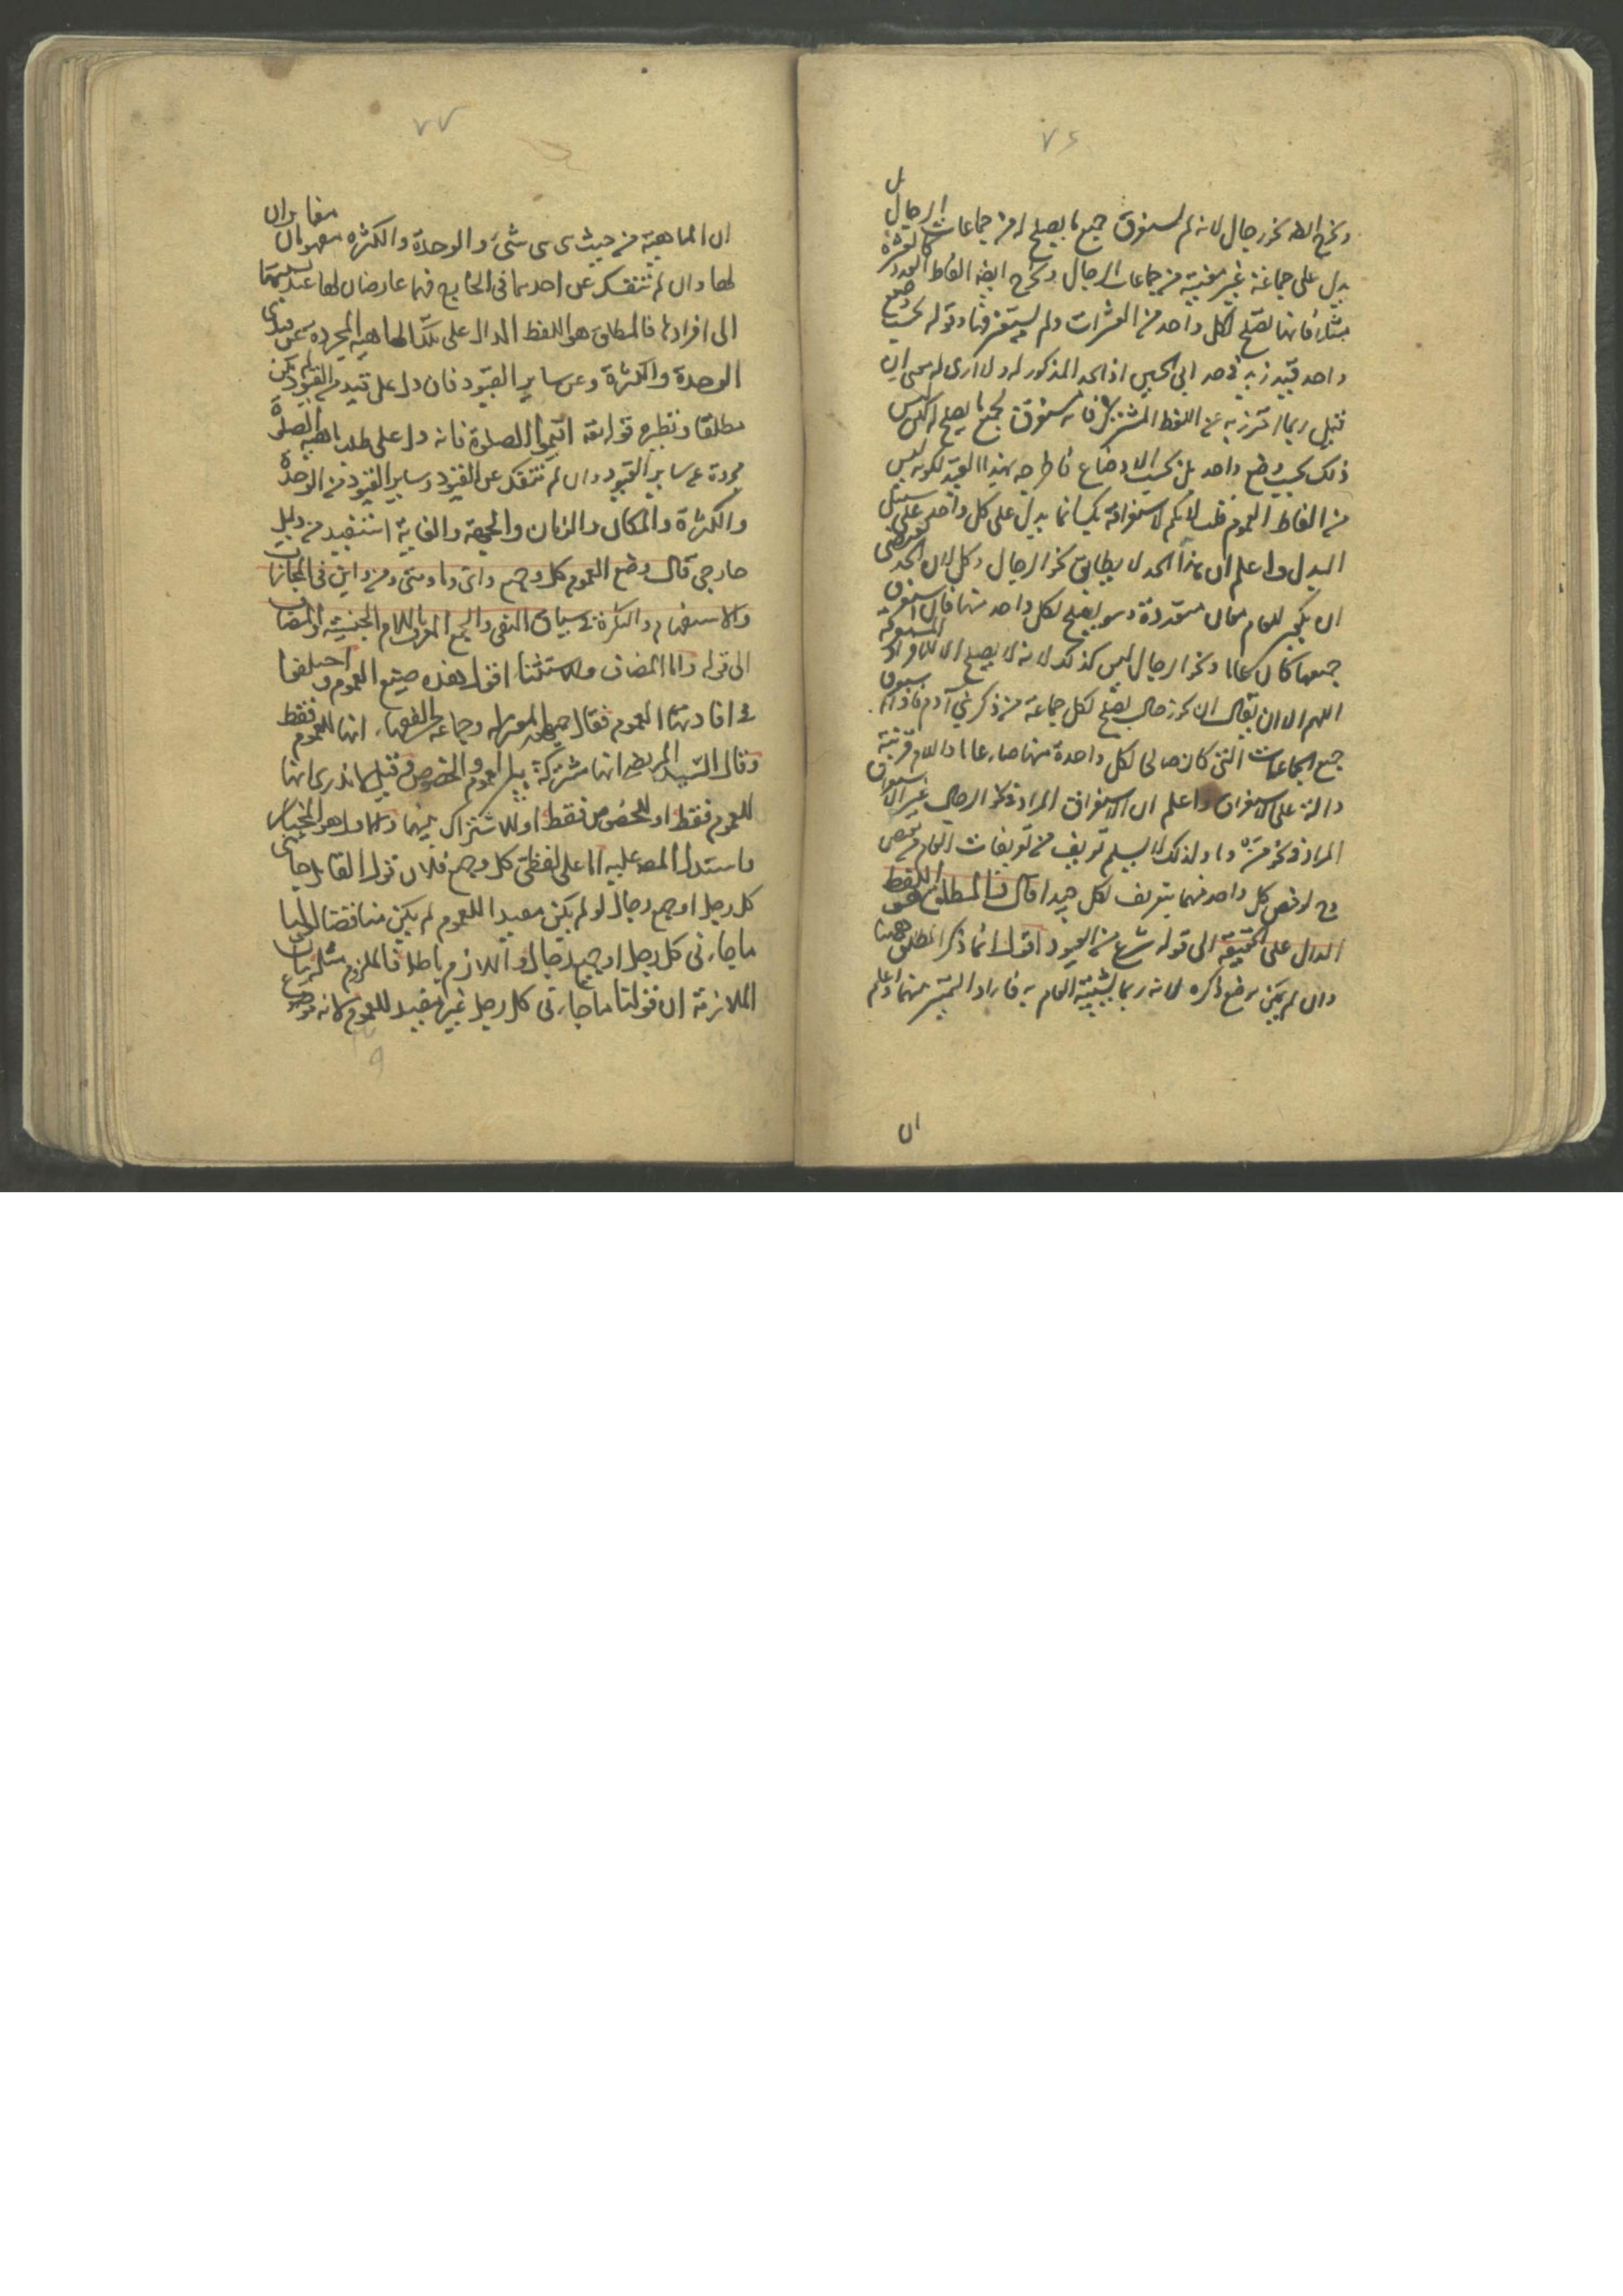 ٧٦
ويخرج ايضا نحو رجال لانه لم يستغرق جميع ما يصلح له من جماعات الرجال بل
يدل على جماعة غير معينة من جماعات الرجال ويخرج ايضا الفاظ العدد كالعشرة
مثلا فانها تصلح لكل واحد من العشرات ولم يستغرقها وقوله بحسب وضع
واحد قيد زيد في حد ابي الحسين اذ الحد المذكور له ولا ارى له معنى ان
قيل ربما احترز به عن اللفظ المشترك فانه مستغرق لجميع ما يصلح له لكن ليس
ذلك بحسب وضع واحد بل بحسب الاوضاع فاطرحه بهذا القيد لكونه ليس
من الفاظ العموم قلت لا نكم لاستغراقه بل انما يدل على كل واحد على سبيل
البدل واعلم ان هذا الحد لا يطابق نحو الرجال وكل لان الحد يقتضى
ان يكون للعام معان متعددة وهو يصلح لكل واحد منها فان استغرق
جميعها كان عاما ونحو الرجال ليس كذلك لانه لا يصلح الا للافراد المستغرقة
اللهم الا ان يقال ان نحو رجال يصلح لكل جماعة من ذكر بني آدم فاذا استغرق
جميع الجماعات التي كان صالحا لكل واحدة منها صار عاما واللام قرينة
دالة على الاستغراق واعلم ان الاستغراق المراد في نحو الرجال غير الاستغراق
المراد في نحو من وما ولذلك لا يسلم تعريف من تعريفات العام من نقص
وح لو خص كل واحد منهما بتعريف لكان جيدا قال فالمطلق هو اللفظ
الدال على الحقيقة الى قوله شرع في القيود اقول انما ذكر المطلق ههنا
وان لم يكن موضع ذكره لانه ربما يشتبه العام به فاراد التميز بينهما واعلم
ان
٧٧
ان الماهية من حيث هي هي شيء والوحدة والكثرة مفهومان مغايران
لها وان لم تنفك عن احديهما في الخارج فهما عارضان لها عند نسبتها
الى افرادها فالمطلق هو اللفظ الدال على تلك الماهية المجردة عن قيدى
الوحدة والكثرة وعن ساير القيود فان دل على قيد من القيود لم يكن
مطلقا ونظيره قوله تعه اقيموا الصلوة فانه دل على طلب ماهية الصلوة
مجردة عن ساير القيود وان لم تنفك عن القيود وساير القيود من الوحدة
والكثرة والمكان والزمان والجهة والغاية استفيد من دليل
خارجي قال وضع العموم كل وجميع واي وما ومتى ومن واين في المجازات
والاستفهام والنكرة في سياق النفي والجمع المعرف باللام الجنسية والمضاف
الى قوله واما المضاف والاستثنا اقول هذه صيغ العموم واختلفوا
في افادتها العموم فقال جمهور المعتزلة وجماعة الفقهاء انها للعموم فقط
وقال السيد المرتضى انها مشتركة بين العموم والخصوص وقيل لا ندرى انها
للعموم فقط او للخصوص فقط او للاشتراك بينهما والاول هو المختار
واستدل المصه عليه اما على لفظتي كل وجميع فلان قول القايل جاءني
كل رجل او جميع رجال لو لم يكن مفيدا للعموم لم يكن مناقضا لقولنا
ما جاءني كل رجل او جميع رجال واللازم باطل فالملزوم مثله بيان
الملازمة ان قولنا ما جاءني كل رجل غير مفيد للعموم لانه موضع